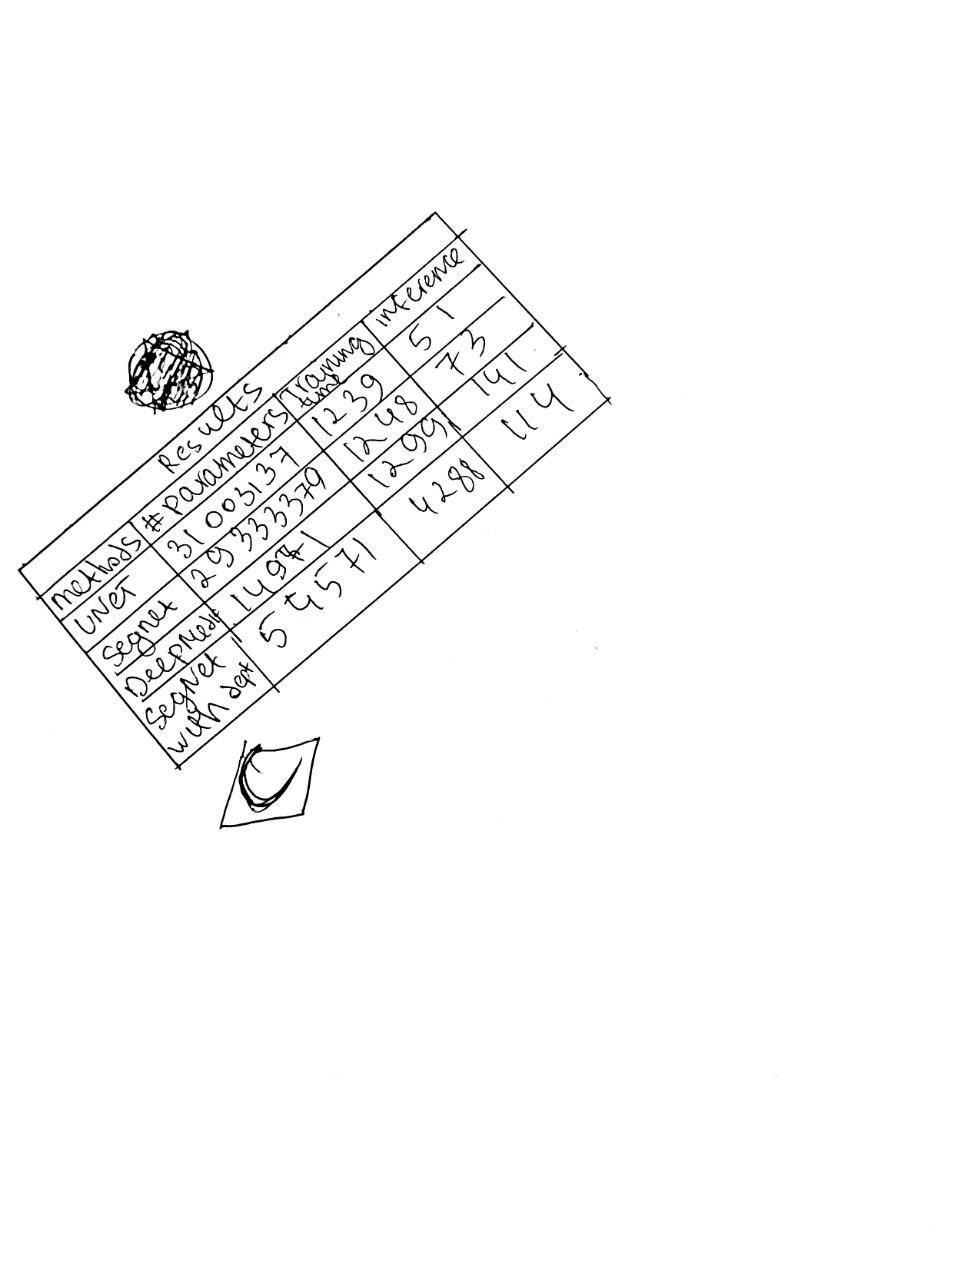 Results
methods #parameters Training time inference
UNet 31003137 1239 51
Segnet 29333379 1248 73
1299 141
Segnet with dept 54571 4288 114